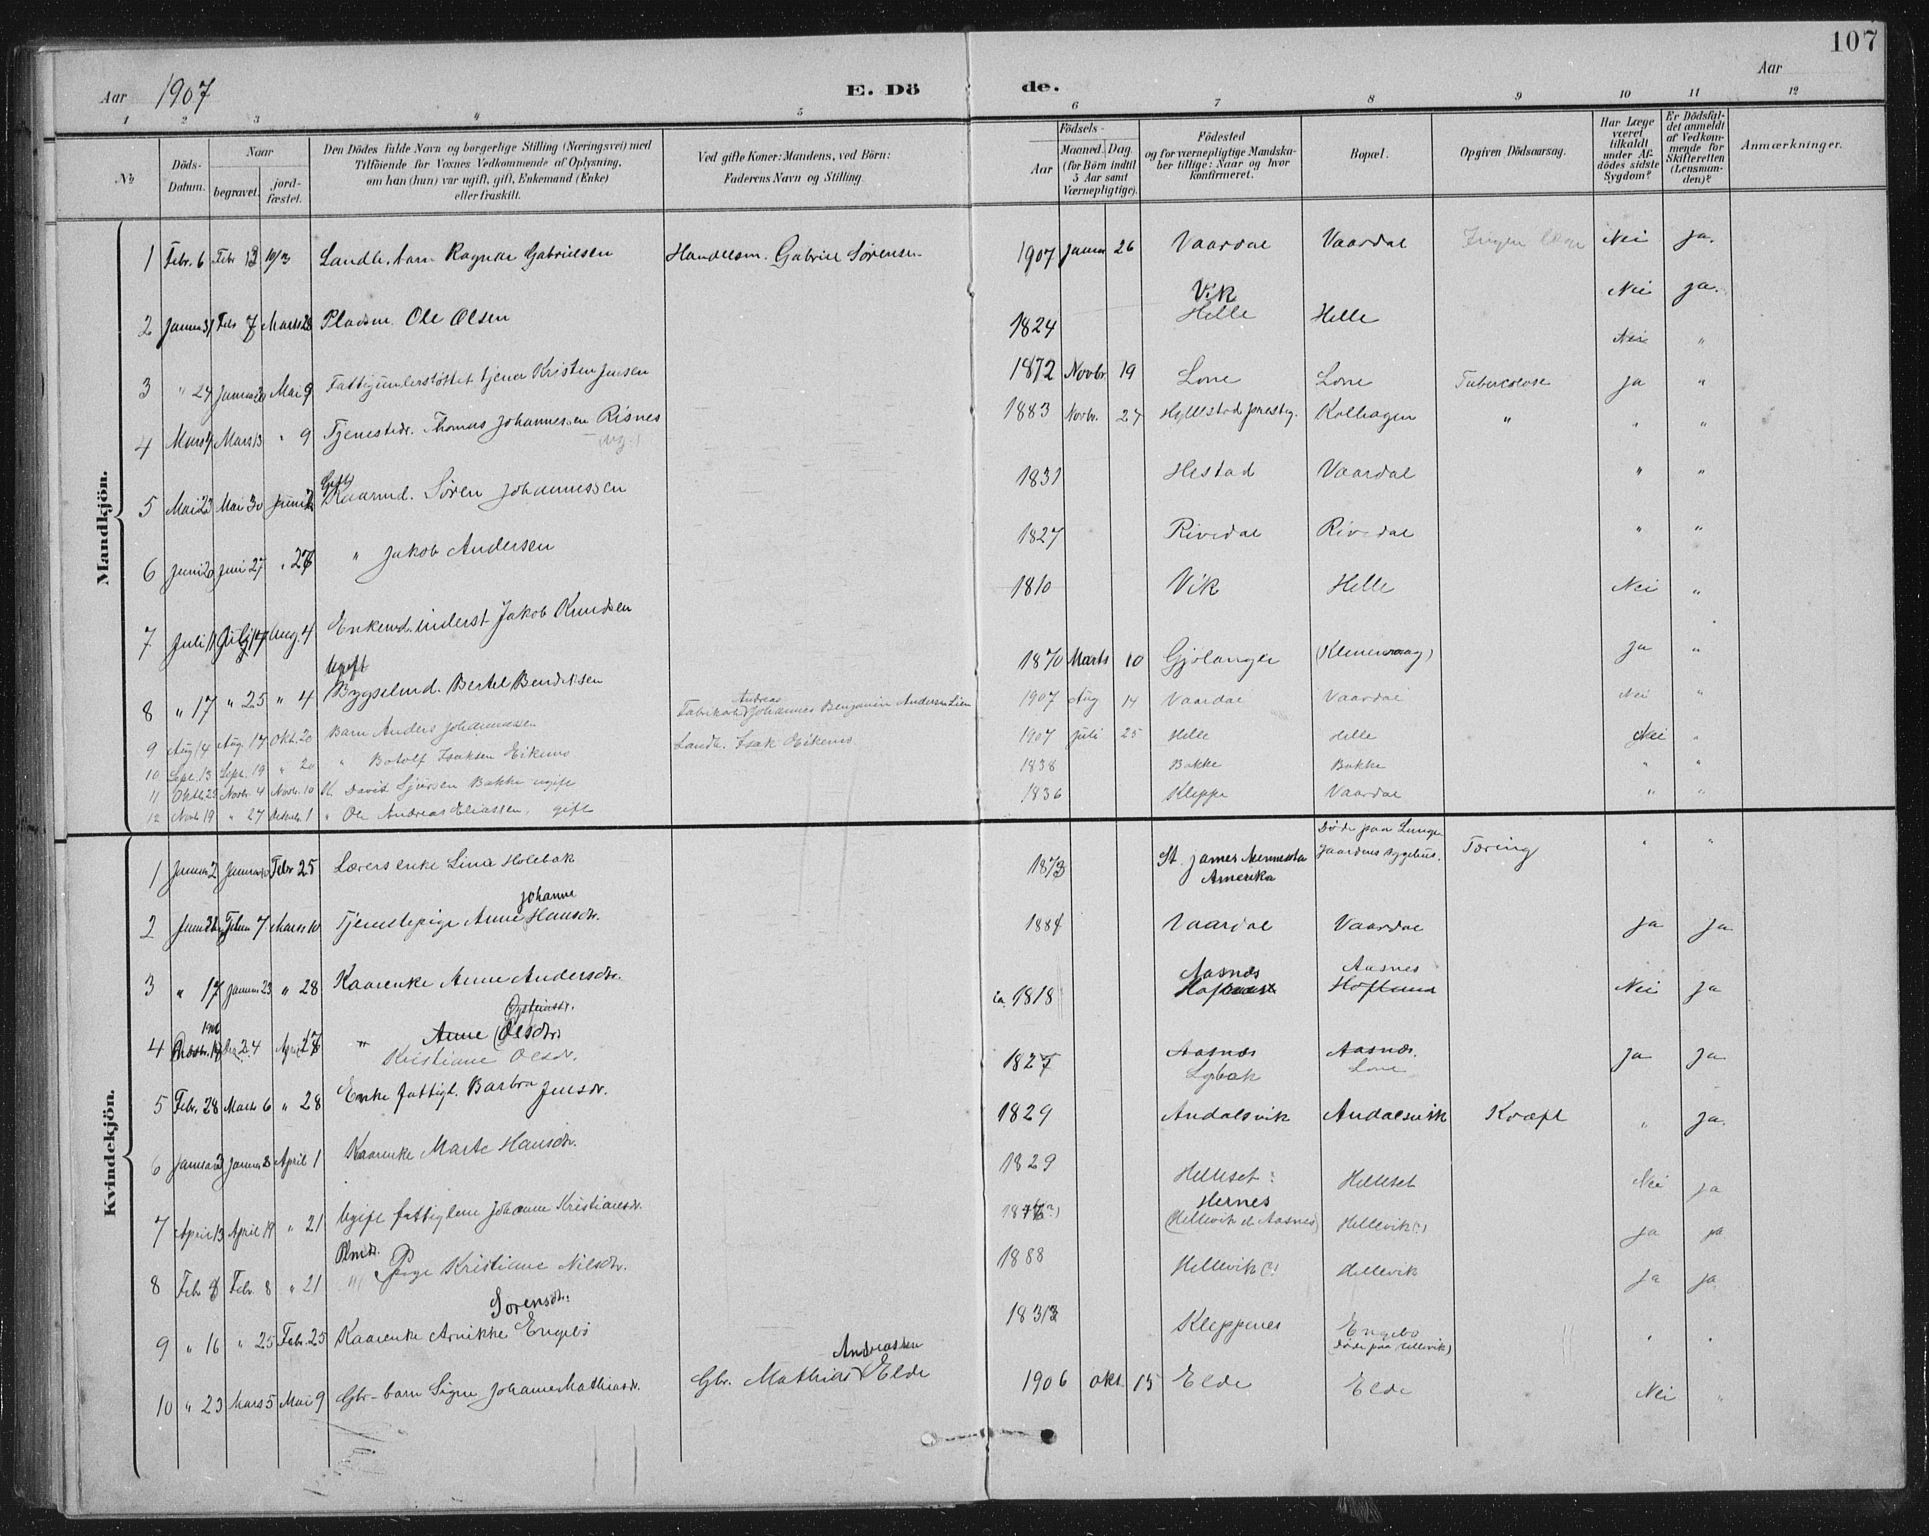 107
Aar 1907 E. Dö de. Aar
1 2 3 4 5 6 7 8 9 10 11 12
№
Döds-Datum.
Naar
begravet.
jord-fæstet.
Den Dödes fulde Navn og borgerlige Stilling (Næringsvei) med
Tilföiende for Voxnes Vedkommende af Oplysning,
om han (hun) var ugift, gift, Enkemand (Enke)
eller fraskilt.
Ved gifte Koner: Mandens, ved Börn:
Faderens Navn og Stilling.
Födsels-
Aar
Maaned. Dag.
(for Börn indtil
5 Aar samt
Værnepligtige).
Födested
og for værnepligtige Mandska-
ber tillige: Naar og hvor
konfirmeret.
Bopæl.
Opgiven Dödsaarsag.
Har Læge
været
tilkaldt
under Af-
dödes sidste
Sygdom?
Er Dödsfal-
det anmeldt
af Vedkom-
mende for
Skifteretten
(Lensman-
den)?
Anmærkninger.
Mandkjön.
1 Febr. 6 Febr 13 10/3 Landh. barn Ragnar Gabrielsen Handelsm. Gabriel Sørensen 1907 Januar 26 Vaardal Vaardal Ingen Nei Ja.
2 Januar 31 Febr 7 Marts 28 Pladsm. Ole Olsen 1824 Vik Helle Helle Nei Ja.
Nei "
3 " 24 Januar 30 Mai 9 Fattigunderstöttet tjener Kristen Jensen 1872 Novbr. 19 Lone Lone Tuberculose Ja "
4 Marts 4 Marts 13 " 9 Tjenestedr. Thomas Johannessen Risnes 1883 Novbr. 27 Hyllestad prestg. Kolhagen " " "
5 Mai 23 Mai 30 Juni Gift Kaarmd. Søren Johannessen 1831 Hestad Vaardal " "
6 Juni 20 Juni 27 " 27 " Jakob Andersen 1827 Rivedal Rivedal " "
7 Juli 11 Juli 17 Aug. 4 Enkemd. inderst Jakob Knudsen 1810 Vik Helle Nei "
8 " 17 " 25 " 4 Ugift Bygselmd. Bertel Bendiksen 1870 Marts 10 Gjølanger Ja "
9 Aug 14 Aug. 17 Okt. 20 Barn Anders Johannessen Fabrikarb. Andreas Johannes Benjamin Andersen Lien 1907 Aug 14 Vaardal Vaardal Nei "
10 Sept. 13 Sept. 19 " 20 " Botolf Isaksen Eikenes Landh. Isak Eikenes 1907 Juli 25 Helle Helle Nei "
11 Oktb. 29 Novbr. 4 Novbr. 10 David Sjursen Bakke ugift 1838 Bakke Bakke " "
12 Novb. 19 " 27 Decbr. 1 " Ole Andreas Eliassen, gift 1836 Kleppe Vaardal " "
Kvindekjön.
1 Januar 2 Januar 10 Febr 25 Lærers enke Lina Holebak 1873 St. James Mennesota Amerika Døde paa Lungegaardens sygehus. Tæring " "
2 Febru 7 Marts 10 Tjenestepige Anne Johanne Hansdr. 1884 Vaardal Vaardal Ja Ja
3 " 17 Januar 23 " 28 Kaarenke Anne Andersdr. ca. 1818 Aasnæs Aasnes Höflund Nei Ja
4 1906 24 April " Anne Olsdr. Øysteinsdr. Kristiane Olsdr. 1827 Aasnæs Aasnæs. Lone Ja Ja
5 Febr. 28 Marts 6 " 28 Enke fattigl. Barbra Jensdr. 1829 Andalsvik Andalsvik Kræft " Ja.
6 Januar 3 Januar 8 April 1 Kaarenke Marte Hansdr. 1829 Helleset Helleset Nei Ja
7 April 13 April 19 " 21 Ugift fattiglem Johanne Kristiansdr. Hernes (Hellevik el. Aasnes) Hellevik (?) Ja Ja
8 Febr. Febr. 8 " 21 Plmdr. Pige Kristiane Nilsdr. 1888 Hellevik (?) Hellevik Ja Ja.
9 " 16 " 25 Febr. 25 Kaarenke Arnikke Sorensdr. Engebö Kleppenes Engebö " "
10 " 23 Marts 5 Mai 9 Gbr-barn Signe Johanne Mathiasdr. Gbr. Mathias Andreassen Elde 1906 Okt. 15 Elde Elde Nei "